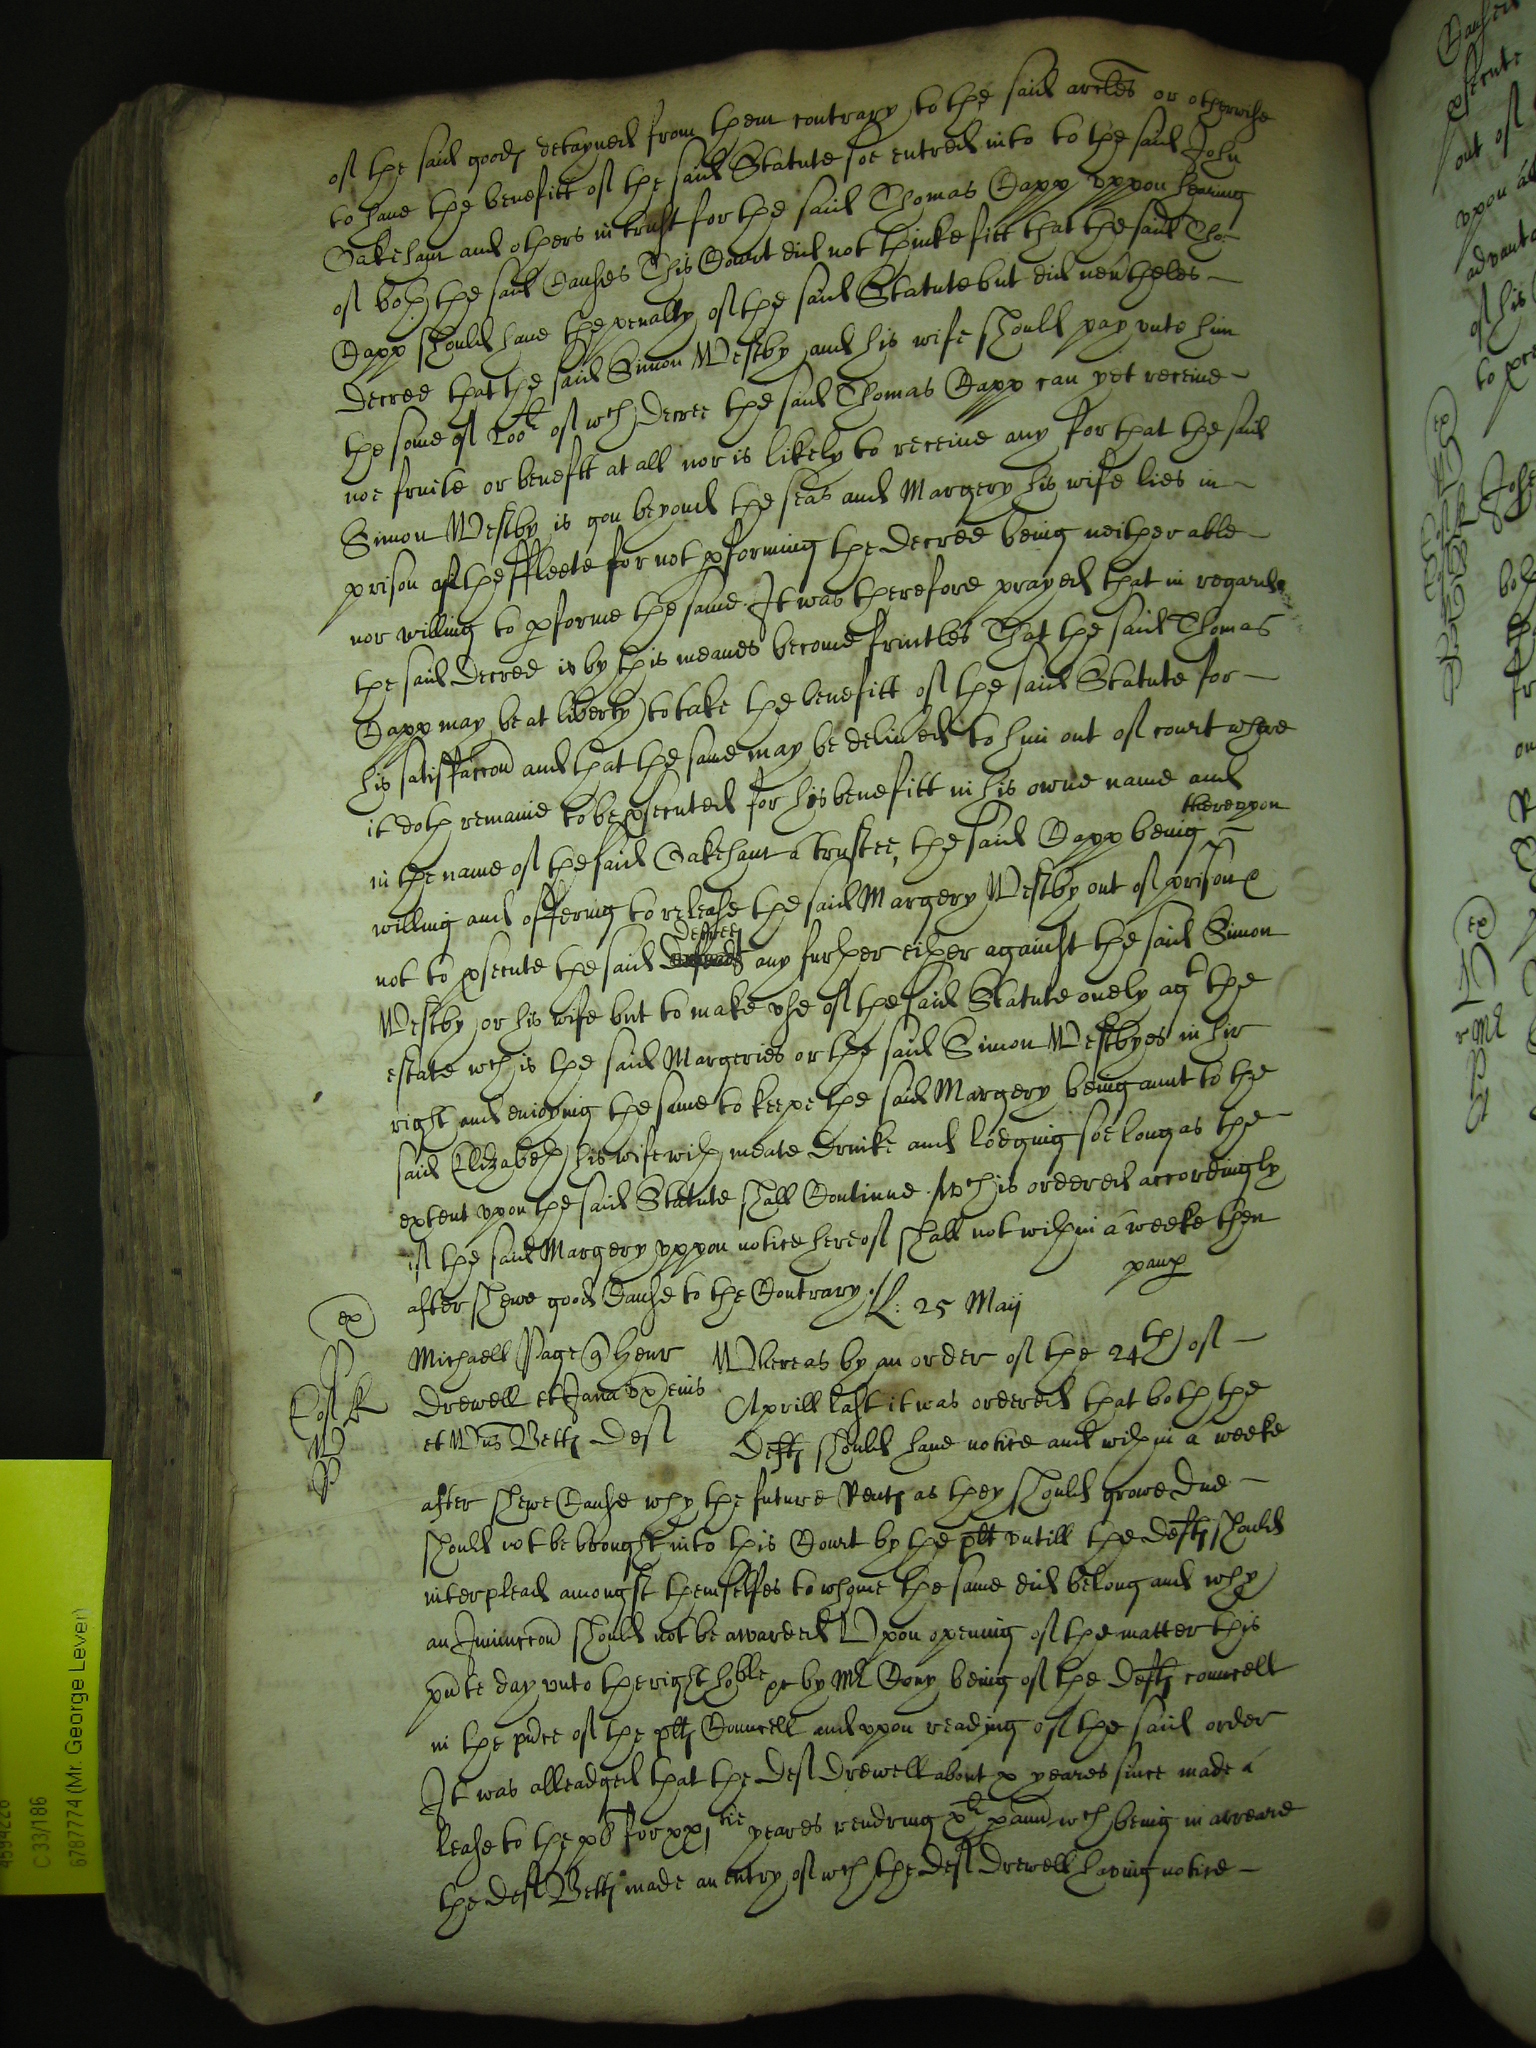 of the said goods detayned from them contrary to the said arcles or otherwise
to have the benefitt of the said Statute soe entred into to the said John
Oakeham and others in trust for the said Thomas Capp uppon hearing
of both the said Causes This Court did not thinke fitt that the said Tho:
Capp should have the penalty of the said Statute but did nevtheles
decree that the said Simon Westby and his wife should pay unto him
the some of 200li of wch decree the said Thomas Capp can yet receive
noe fruite or benefitt at all nor is likely to receive any for that the said
Simon Westby is gon beyond the seas and Margery his wife lies in
prison of the ffleete for not pforming the decree being neither able
nor willing to pforme the same It was therefore prayed that in regard
the said decree is by this meanes become fruitles That the said Thomas
Capp may be at liberty to take the benefitt of the said Statute for
his satisfaccon and that the same may be delived to him out of court where
it doth remaine to be psecuted for his benefitt in his owne name and
thereupon
in the name of the said Oakeham a trustee, the said Capp being
willing and offering to release the said Margery Westby out of prison &
decree
not to psecute the said any further either against the said Simon
Westby or his wife but to make use of the said Statute onely agt the
estate wch is the said Margeries or the said Simon Westbyes in hir
right and enioying the same to keepe the said Margery being aunt to the
said Elizabeth his wife with meate drinke and lodging soe long as the
extent upon the said Statute shall Continue. Wch is ordered accordingly
if the said Margery uppon notice hereof shall not within a weeke then
after shewe good Cause to the Contrary.
paup
L: 25 Maij
ex
Michaell Page q Henr
Drewell et Jana ux eius
et Wms Betts Def
Whereas by an order of the 24th of
Aprill last it was ordered that both the
Defts should have notice and within a weeke
after shewe Cause why the future Rents as they should growe due
should not be brought into this Court by the plt untill the Defts should
interplead amongst themselfes to whome the same did belong and why
an Iniunccon should not be awarded Upon opening of the matter this
pnte day unto the right hoble &c by Mr Cony being of the Defts councell
in the pnce of the plts Councell and upon reading of the said order
It was alleadged that the Def Drewell about x yeares since made a
lease to the pl for xxi tie yeares rendring xli p ann wch being in arreare
the def Betts made an entry of wch the def Drewell having notice
C 33/186
6787774 (Mr. George Lever)